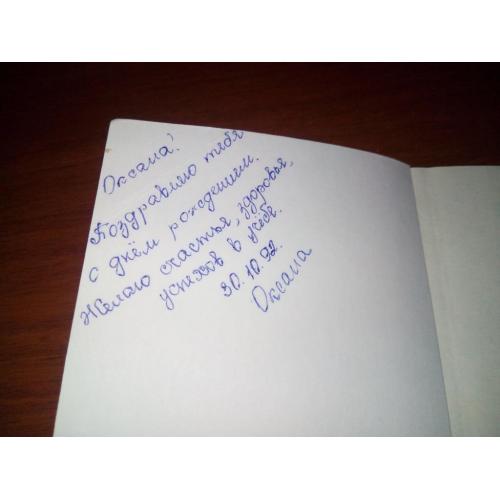 Оксана!
Поздравляю тебя
с днём рождения.
Желаю счастья, здоровья,
успехов в учёбе.
30.10.92.
Оксана